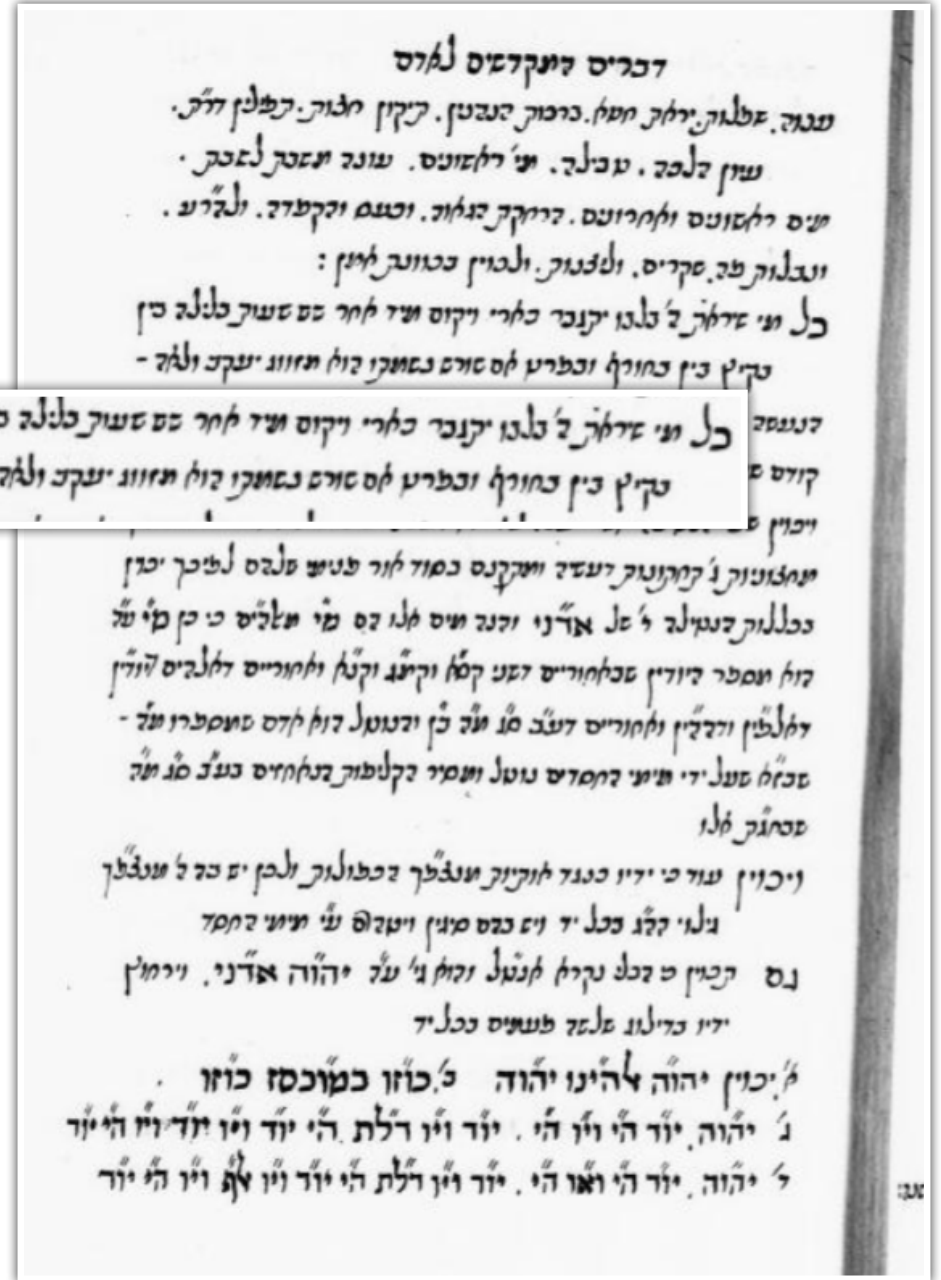 דברים המקדשים לאדם
ענוה. שפלות. יראת חטא. ברכות הנהנין. תיקון חצות. תפילין דר״ת.
עיון הלכה. טבילה. מי׳ ראשונים. עונה משבת לשבת.
מים ראשונים ואחרונים. הרחקת הגאוה. וכעס והקפדה. ולה״רע.
ונבלות פה. שקרים. וליצנות. ולכוין בכוונת אמן:
כל מי שיראת ה׳ בלבו יתגבר כארי ויקום מיד אחר שש שעות בלילה בין
בקיץ בין בחורף ובפרט אם שורש נשמתו הוא מזווג יעקב ולאה -
כל מי שיראת ה׳ בלבו יתגבר כארי ויקום מיד אחר שש שעות בלילה
בקיץ בין בחורף ובפרט אם שורש נשמתו הוא מזווג יעקב ולאה
הנעשה
קודם
ויכוין
מחצוניות ג׳ תחתונות דעשיה ומתקנם בסוד אור פנימי שלהם לפיכך יכוין
בכללות הנטילה ר׳ של אדני והנה מים אלו הם מ״י מאלהים כי כן מ״י ע״ה
הוא מספר היודין שבאחוריים דשני קס״א וקמ״ג וקנ״א ואחוריים דאלהים יודין
דאלפין וההין ואחוריים דע״ב ס״ג מ״ה ב״ן והנוטל הוא אדם שמספרו מ״ה -
שבז״א שעל ידי מימי החסדים נוטל ומסיר הקליפות הנאחזים בע״ב ס״ג מ״ה
שבחג״ת אלו
ויכוין עוד כי ידיו כנגד אותיות מנצפ״ך הכפולות ולכן יש בה ה׳ מנצפ״ך
גילוי הה״ג בכל יד ויש בהם סיגין ע״י מימי החסד
גם תכוין כי הכלי נקרא אנט״ל והוא גי׳ ע״ה יהו״ה אד״ני. וירחוץ
ידיו בדילוג שלשה פעמים בכל יד
א׳. יכוין יהו״ה אלהינו יהו״ה ב׳. כוזו במוכסז כוזו.
ג׳ יהוה. יוד הי ויו הי. יוד ויו דלת הי יוד ויו יוד ויו הי יוד
ד׳ יהוה. יוד הי ואו הי. יוד ויו דלת הי יוד ויו אלף ויו הי יוד